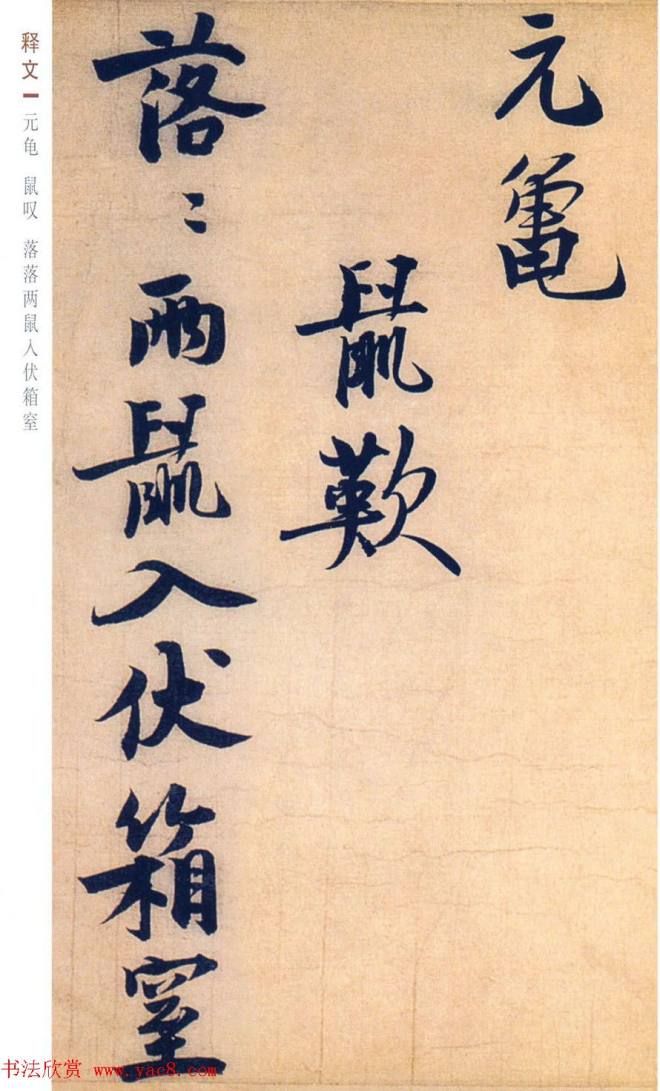 元龜
鼠歎
落〻兩鼠入伏箱窒
释文 元龟 鼠叹 落落两鼠入伏箱窒
书法欣赏 www.yac8.com